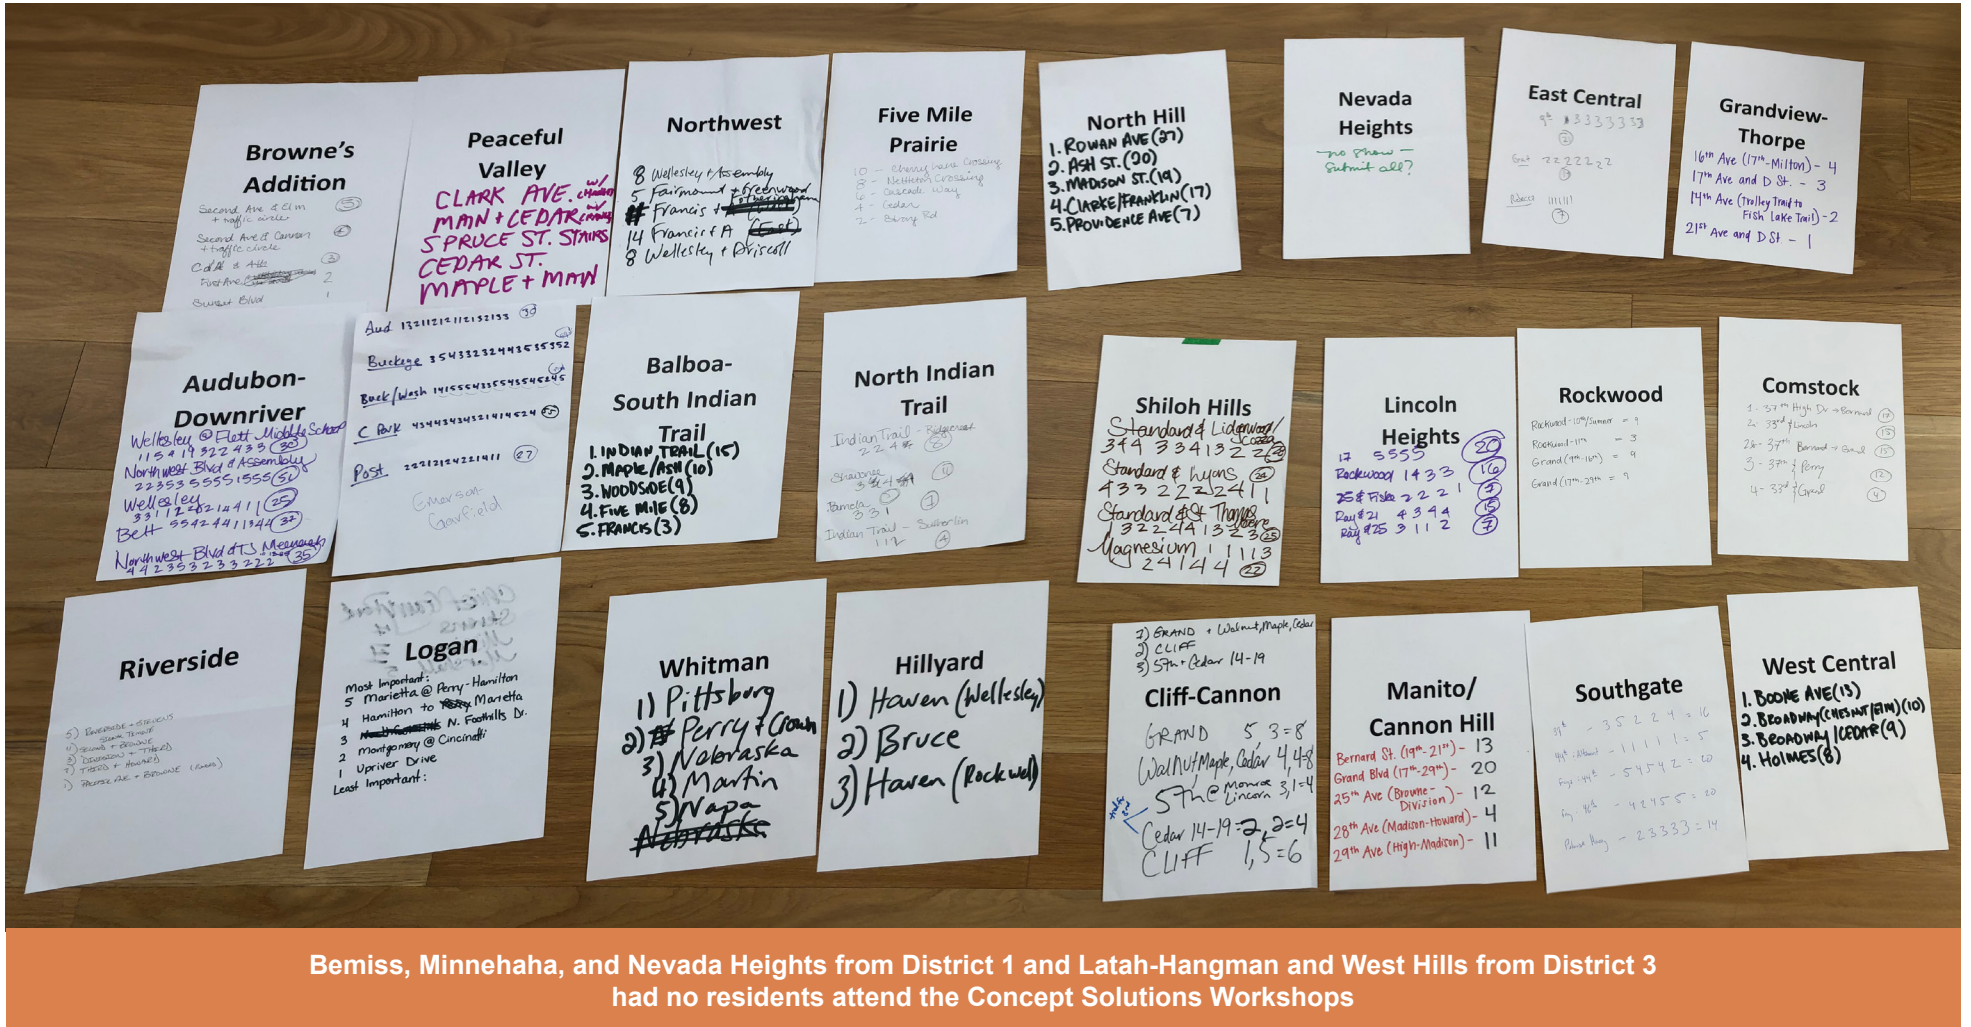 Browne's
Addition
Second Ave & Elm
+ traffic circle
Second Ave & Cannon
+ traffic circle
First Ave
2
Sunset Blvd
1
Peaceful
Valley
CLARK AVE. w/
MAIN + CEDAR
SPRUCE ST. STAIRS
CEDAR ST.
MAPLE + MAIN
Northwest
8 Wellesley + Assembly
5 Fairmount + Greenwood
Francis +
14 Francis + A
8 Wellesley + Driscoll
Five Mile
Prairie
10 - Cherry Lane Crossing
8 - Nettleton Crossing
6 - Cascade Way
4 - Cedar
2 - Strong Rd
North Hill
1. ROWAN AVE (27)
2. ASH ST. (20)
3. MADISON ST. (19)
4. CLARKE/FRANKLIN (17)
5. PROVIDENCE AVE (7)
Nevada
Heights
no show -
Submit all?
East Central
9th 3333333
2222222
1111111
7
Grandview-
Thorpe
16th Ave (17th-Milton) - 4
17th Ave and D St. - 3
14th Ave (Trolley Trail to
Fish Lake Trail) - 2
21st Ave and D St - 1
Audubon-
Downriver
Wellesley @ Flett Middle School
30
Northwest Blvd & Assembly
22353 5555 1555 51
Wellesley
25
Belt 55424411344 37
Northwest Blvd & TJ Meenach
35
Aud 30
Buckeye
Buck/Wash
C Park
Post 27
Emerson-
Garfield
Balboa-
South Indian
Trail
1. INDIAN TRAIL (15)
2. MAPLE/ASH (10)
3. WOODSIDE (9)
4. FIVE MILE (8)
5. FRANCIS (3)
North Indian
Trail
Indian Trail - Ridgecrest
8
Shawnee
Pamela
331 7
Indian Trail - Sutherlin
112 4
Shiloh Hills
Standard & Lidgerwood/
344 334132 2
Standard & Lyons
433 2222411
Standard & St Thomas
Moore
322441323 25
Magnesium 11113
24144 22
Lincoln
Heights
17 5555 20
Rockwood 1433 16
25 & Fiske 2221 7
Ray & 21 4344 15
Ray & 25 3112 7
Rockwood
Rockwood - 10th/Sumner = 9
Rockwood - 11th = 3
Grand (9th-16th) = 9
Grand (17th-29th) = 9
Comstock
1 - 37th High Dr → Bernard 17
2 - 33rd & Lincoln 15
2a - 37th Bernard → Grand 15
3 - 37th & Perry 12
4 - 33rd & Grand 4
Riverside
5) RIVERSIDE + STEVENS
4) SECOND + BROWNE
3) DIVISION + THIRD
2) THIRD + HOWARD
Logan
Most Important:
5 Marietta @ Perry-Hamilton
4 Hamilton to Marietta
3 N. Foothills Dr.
2 Montgomery @ Cincinatti
1 Upriver Drive
Least Important:
Whitman
1) Pittsburg
2) Perry + Crown
3) Nebraska
4) Martin
5) Napa
Nebraska
Hillyard
1) Haven (Wellesley)
2) Bruce
3) Haven (Rockwell)
1) GRAND + Walnut, Maple, Cedar
2) CLIFF
3) 5th + Cedar 14-19
Cliff-Cannon
GRAND 5 3=8
Walnut Maple, Cedar 4,4=8
5th @ Monroe
Lincoln 3,1=4
Cedar 14-19=2,2=4
CLIFF 1,5=6
Manito/
Cannon Hill
Bernard St. (19th-21st) - 13
Grand Blvd (17th-29th) - 20
25th Ave (Browne-
Division) - 12
28th Ave (Madison-Howard) - 4
29th Ave (High-Madison) - 11
Southgate
39th - 35224 = 16
44th - Altamont - 11111 = 5
44th - 54542 = 20
42455 = 20
Patrick Henry - 23333 = 14
West Central
1. BOONE AVE (13)
2. BROADWAY (CHESNUT/ELM) (10)
3. BROADWAY/CEDAR (9)
4. HOLMES (8)
Bemiss, Minnehaha, and Nevada Heights from District 1 and Latah-Hangman and West Hills from District 3
had no residents attend the Concept Solutions Workshops